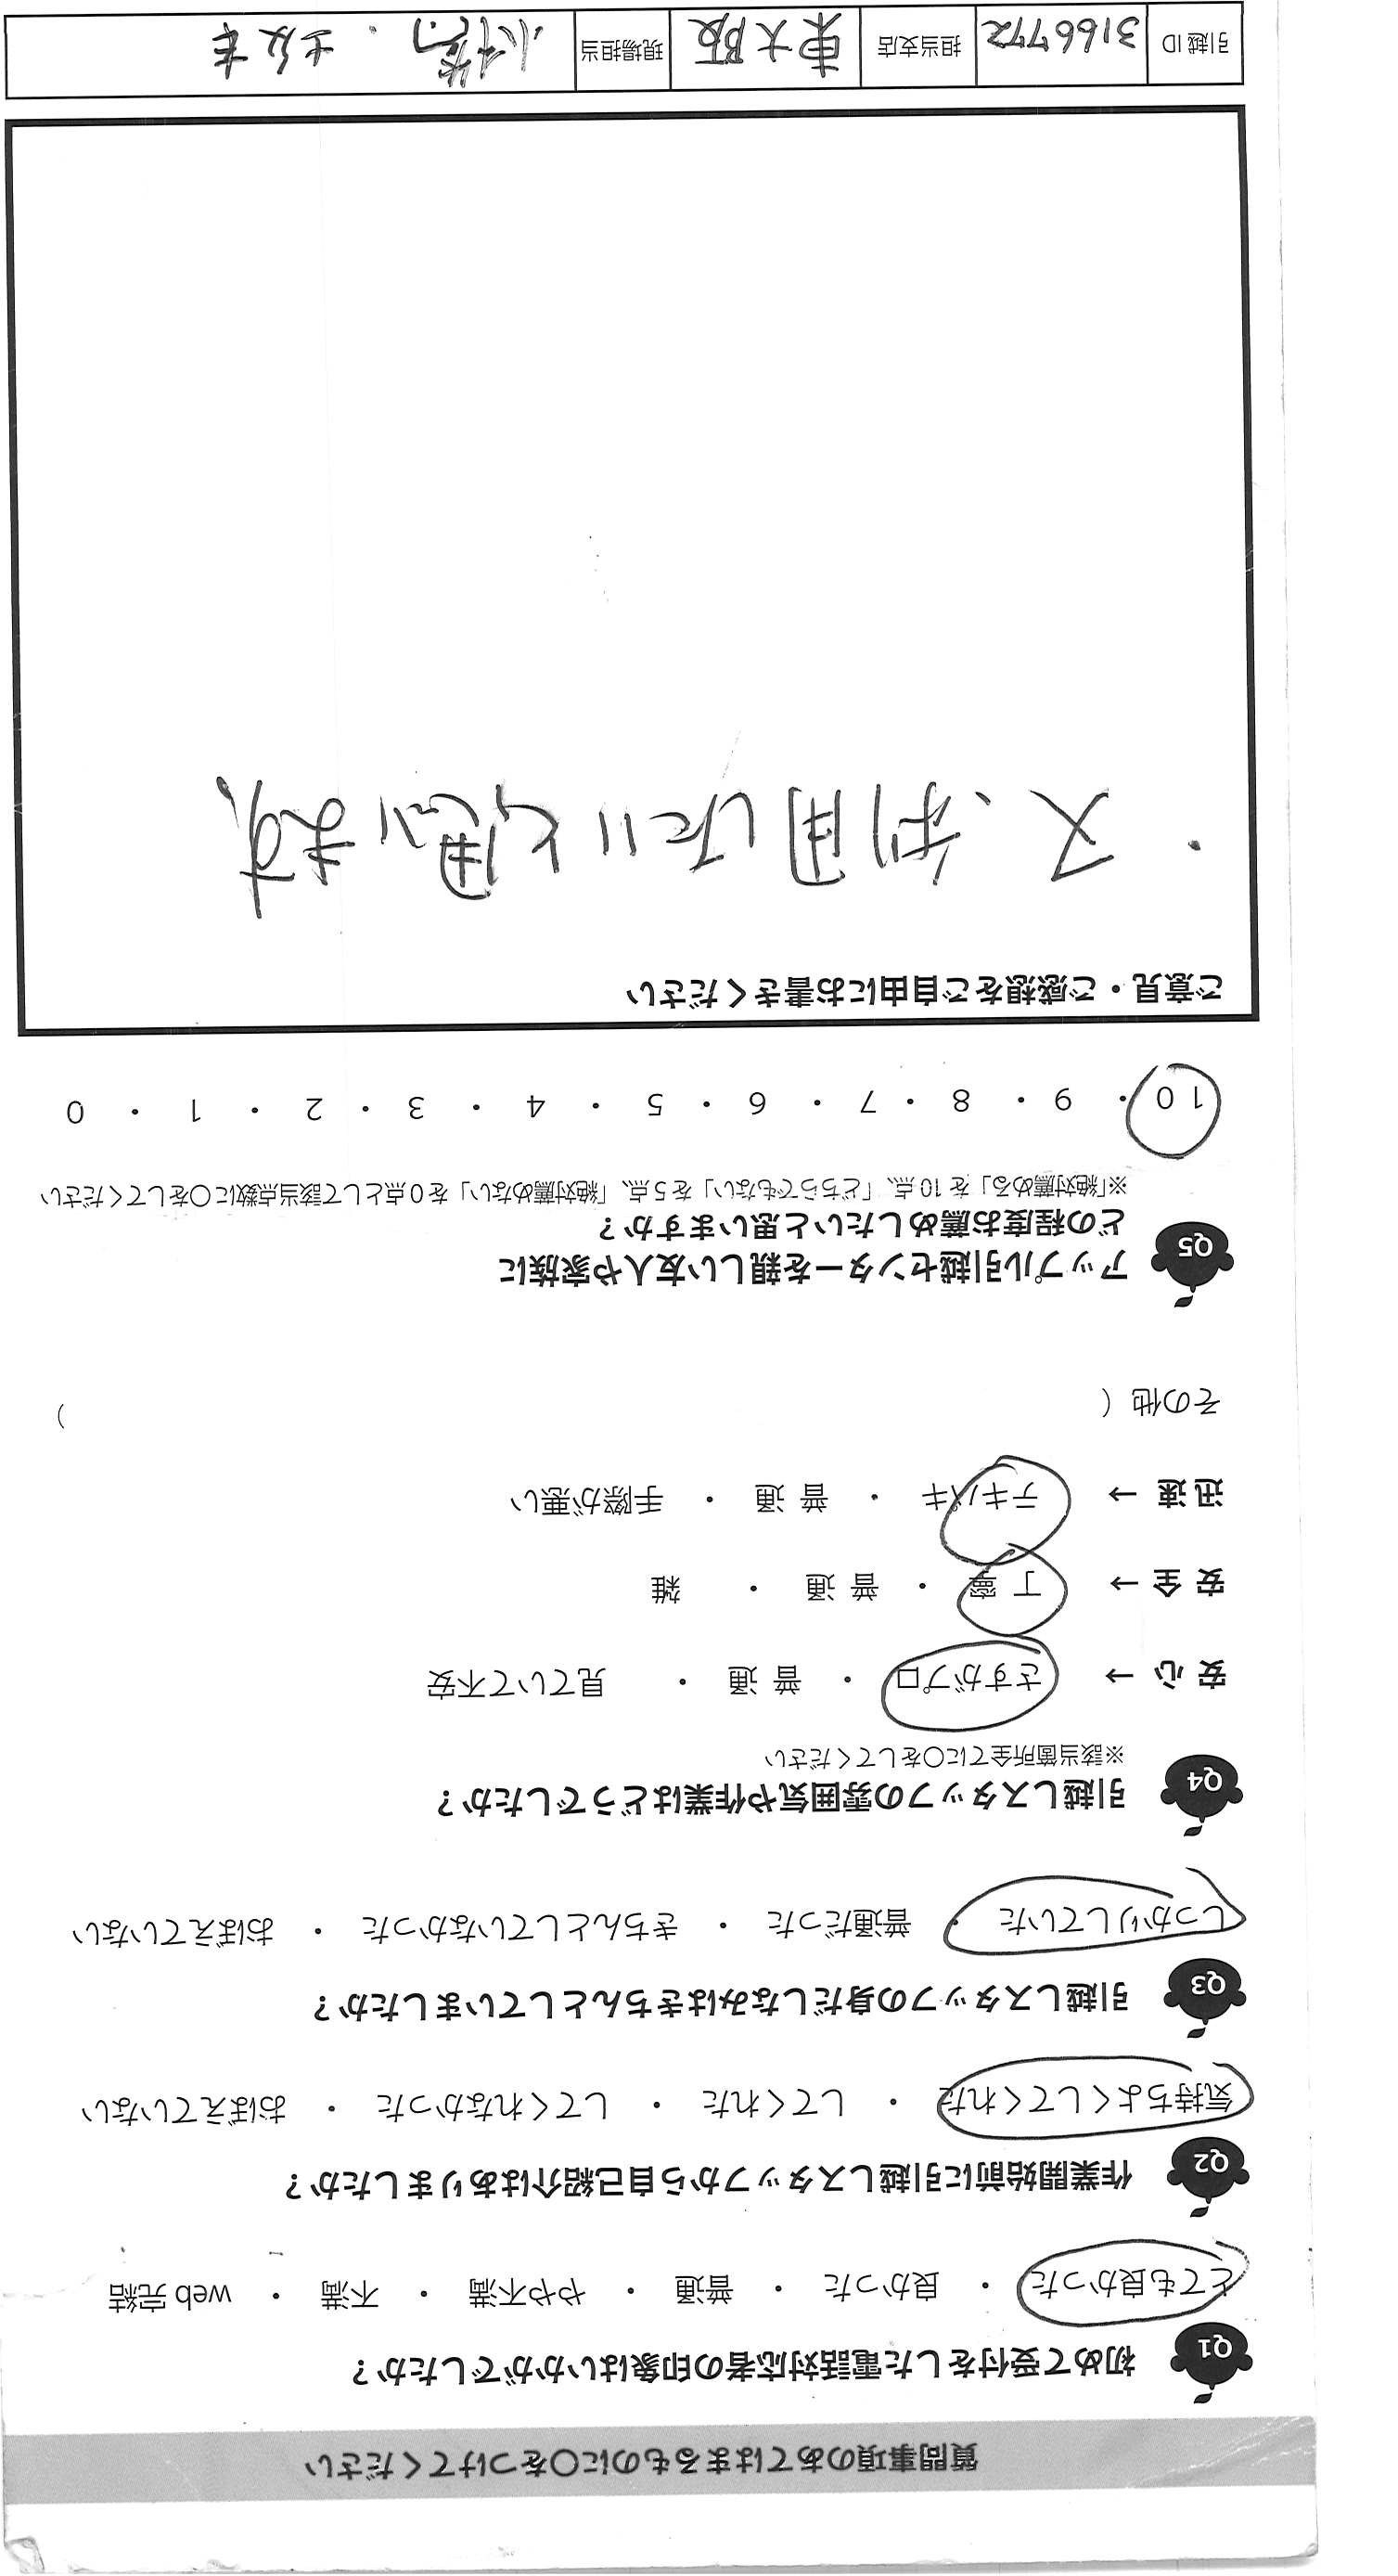 質問事項のあてはまるものに〇をつけてください
Q1 初めて受付をした電話対応者の印象はいかがでしたか？
とても良かった ・ 良かった ・ 普通 ・ やや不満 ・ 不満 ・ web 完結
Q2 作業開始前に引越しスタッフから自己紹介はありましたか？
気持ちよくしてくれた ・ してくれた ・ してくれなかった ・ おぼえていない
Q3 引越しスタッフの身だしなみはきちんとしていましたか？
しっかりしていた ・ 普通だった ・ きちんとしていなかった ・ おぼえていない
Q4 引越しスタッフの雰囲気や作業はどうでしたか？
※該当箇所全てに〇をしてください
安 心 → さすがプロ ・ 普 通 ・ 見ていて不安
安 全 → 丁 寧 ・ 普 通 ・ 雑
迅 速 → テキパキ ・ 普 通 ・ 手際が悪い
その他（ ）
Q5 アップル引越センターを親しい友人や家族に
どの程度お薦めしたいと思いますか？
※「絶対薦める」を 10 点、「どちらでもない」を 5 点、「絶対薦めない」を 0 点として該当点数に〇をしてください
10 ・ 9 ・ 8 ・ 7 ・ 6 ・ 5 ・ 4 ・ 3 ・ 2 ・ 1 ・ 0
ご意見・ご感想をご自由にお書きください
・又、利用したいと思います、
引越 ID 3166772 担当支店 東大阪 現場担当